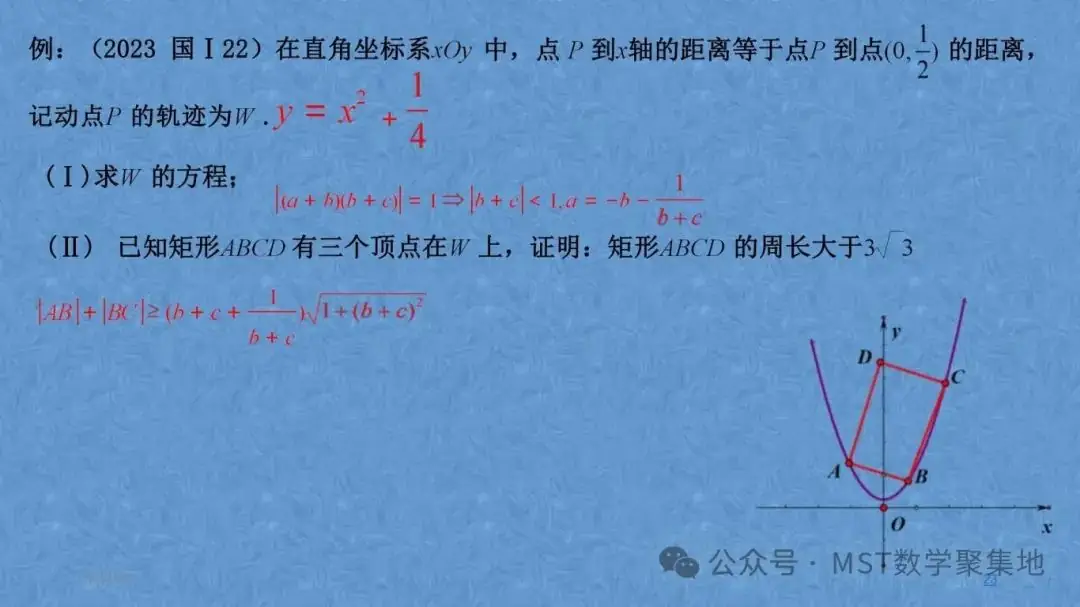 例：（2023 国Ⅰ22）在直角坐标系xOy 中，点 P 到x轴的距离等于点P 到点(0, 1/2) 的距离，
记动点P 的轨迹为W . y = x² + 1/4
(Ⅰ)求W 的方程；
|(a + b)(b + c)| = 1 ⇒ |b + c| < 1, a = -b - 1/(b + c)
(Ⅱ) 已知矩形ABCD 有三个顶点在W 上，证明：矩形ABCD 的周长大于3√3
|AB| + |BC| ≥ (b + c + 1/(b + c))√(1 + (b + c)²)
y
D
C
A
B
O
x
公众号 · MST数学聚集地